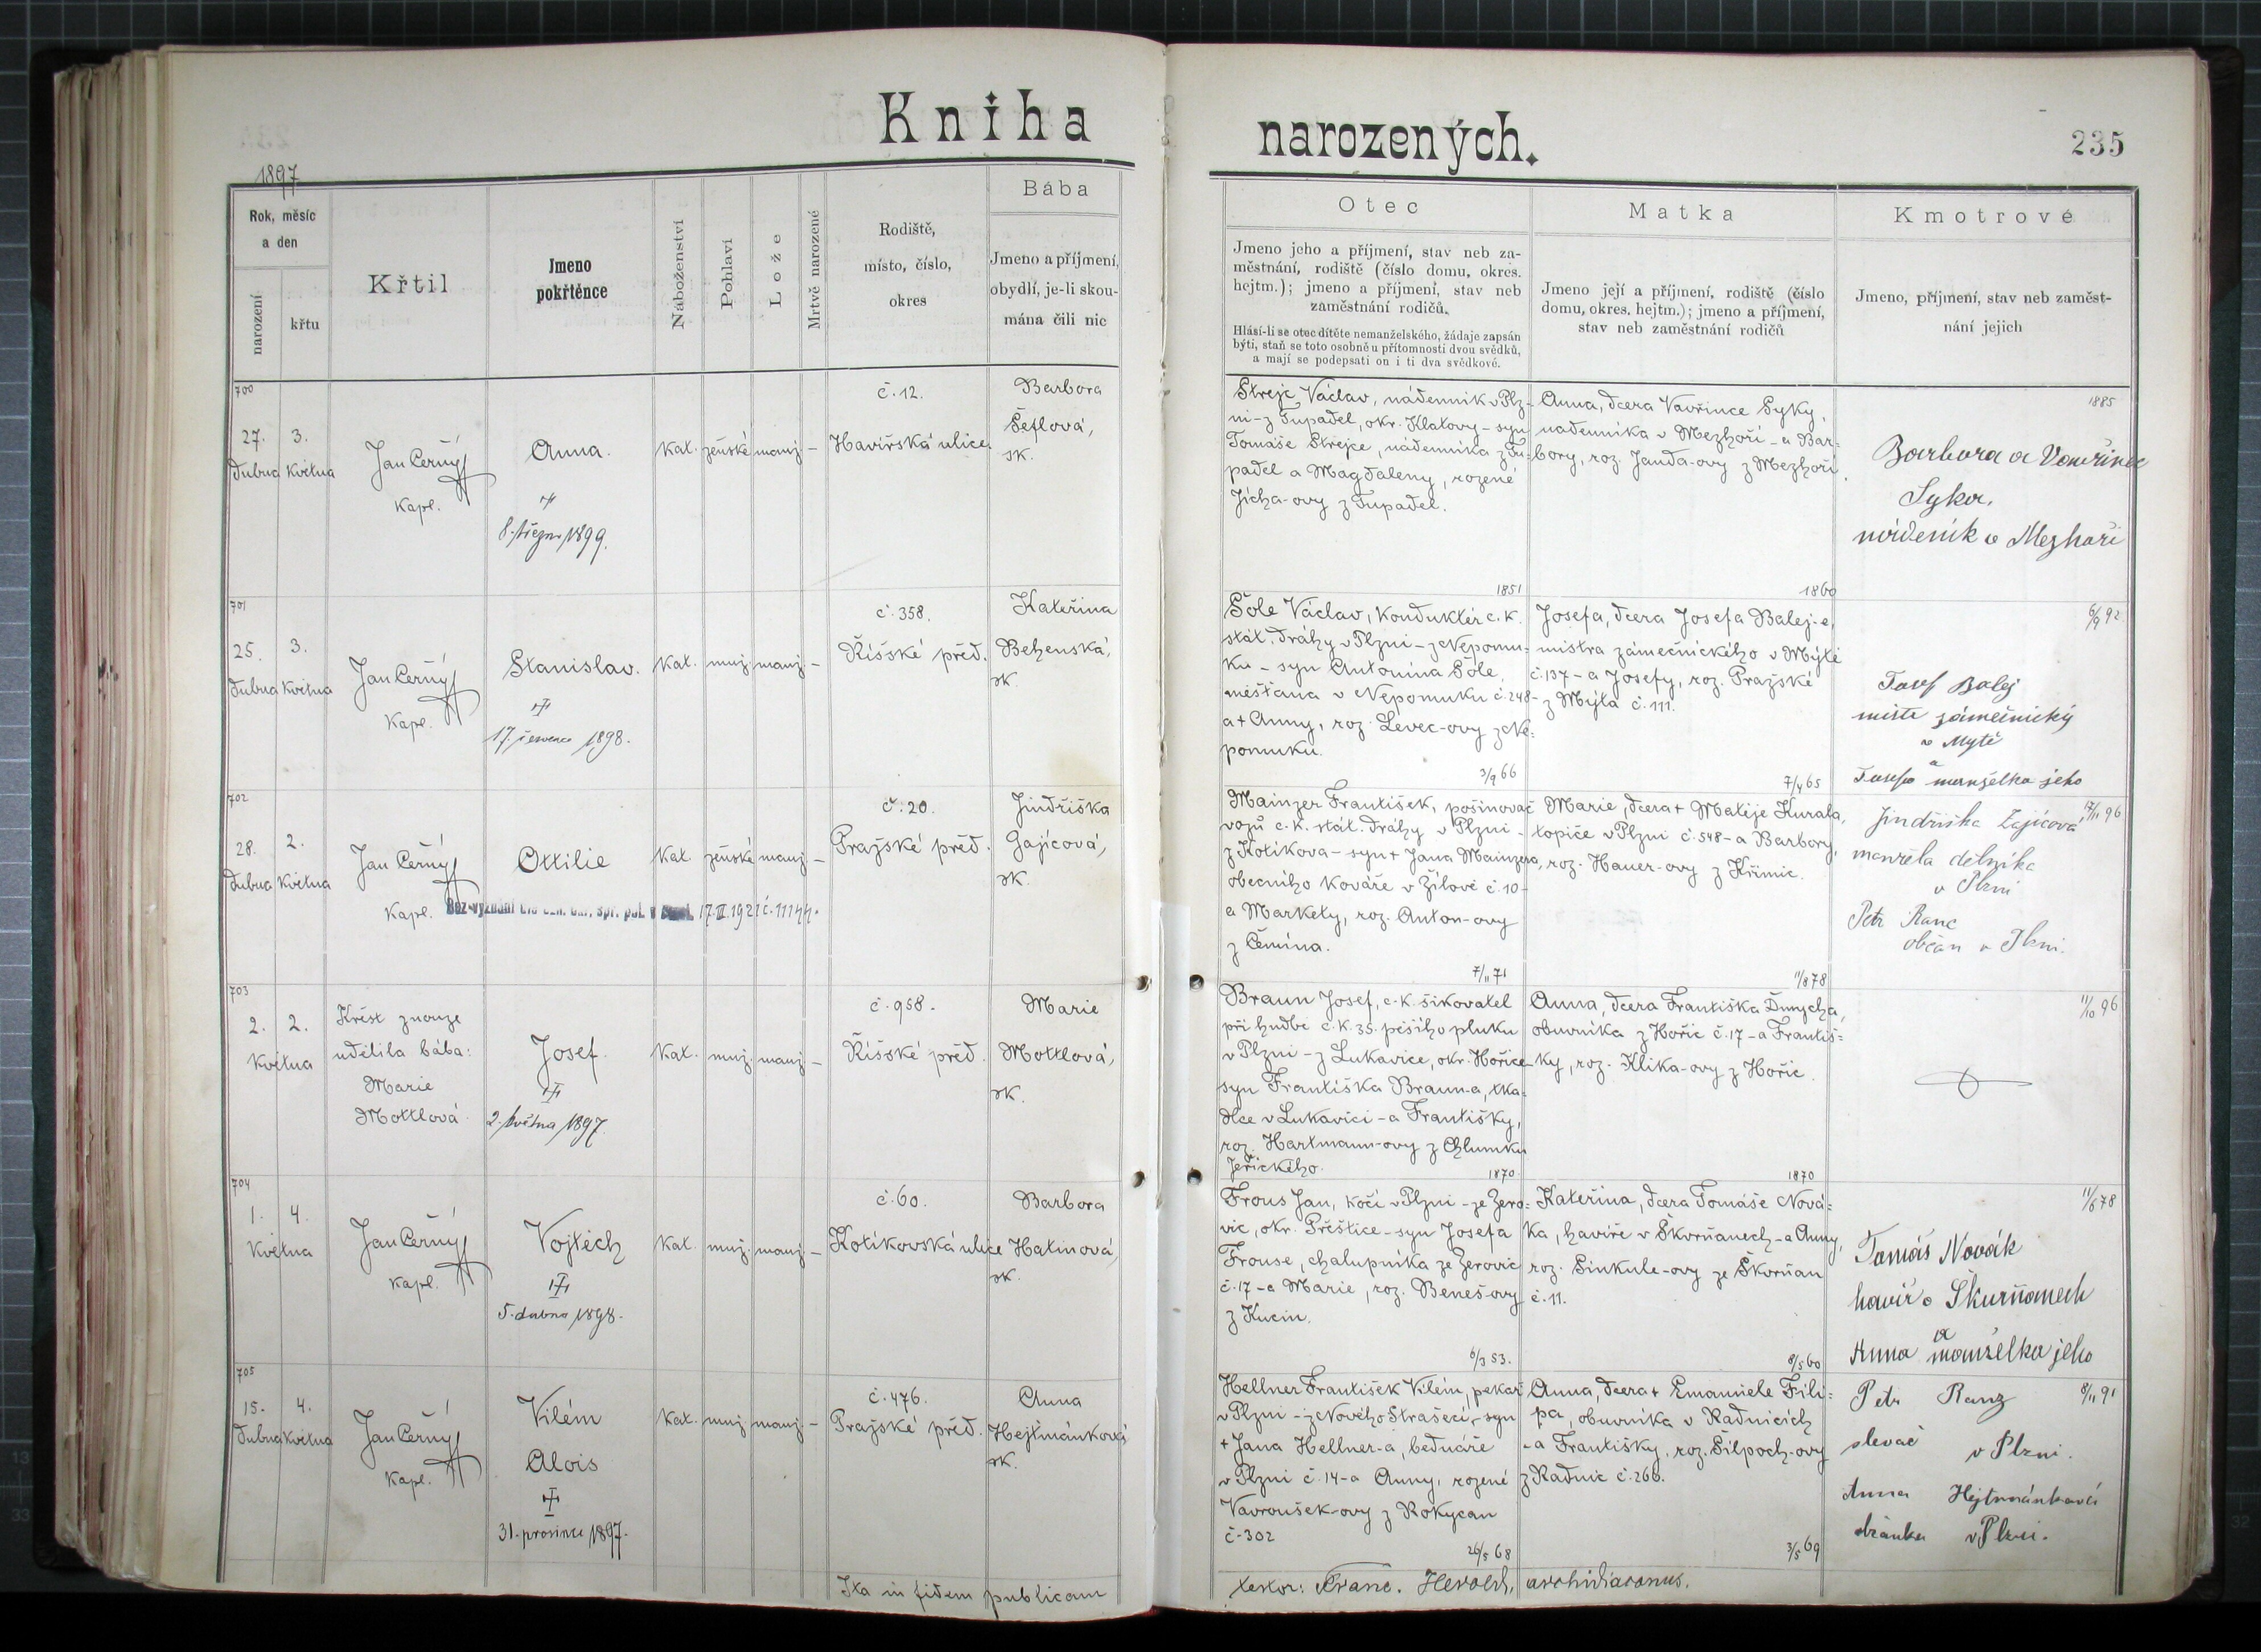 Kniha
narozených.
235
1897
Rok, měsíc
a den
narození
křtu
Křtil
Jmeno
pokřtěnce
Náboženství
Pohlaví
Lože
Mrtvě narozené
Rodiště,
místo, číslo,
okres
Bába
Jmeno a příjmení,
obydlí, je-li skou-
mána čili nic
Otec
Jmeno jeho a příjmení, stav neb za-
městnání, rodiště (číslo domu, okres.
hejtm.); jmeno a příjmení, stav neb
zaměstnání rodičů.
Hlásí-li se otec dítěte nemanželského, žádaje zapsán
býti, staň se toto osobně u přítomnosti dvou svědků,
a mají se podepsati on i ti dva svědkové.
Matka
Jmeno její a příjmení, rodiště (číslo
domu, okres. hejtm.); jmeno a příjmení,
stav neb zaměstnání rodičů
Kmotrové
Jmeno, příjmení, stav neb zaměst-
nání jejich
700
27.
dubna
3.
května
Jan Černý
kapl.
Anna.
8. března 1899.
kat.
ženské
manž.
–
č. 12.
Havířská ulice
Barbora
Šeflová,
zk.
Strejc Václav, nádenník v Plz-
ni - z Tupadel, okr. Klatovy - syn
Tomáše Strejce, nádenníka z Tu-
padel a Magdaleny, rozené
Jícha-ovy z Tupadel.
1851
Anna, dcera Vavřince Syky,
nádenníka v Mezhoří - a Bar-
bory, roz. Janda-ovy z Mezhoří.
1860
1885
Barbora a Vavřinec
Syka,
nádeník v Mezhoři
701
25.
dubna
3.
května
Jan Černý
kapl.
Stanislav.
17. července 1898.
kat.
muž.
manž.
–
č. 358.
Říšské před.
Kateřina
Behenská,
zk.
Šole Václav, konduktér c. k.
stát. dráhy v Plzni - z Nepomu-
ku - syn Antonína Šole,
měšťana v Nepomuku č. 248 -
a + Anny, roz. Levec-ovy z Ne-
pomuku.
3/9 66
Josefa, dcera Josefa Balej-e,
mistra zámečnického v Mýtě
č. 137 - a Josefy, roz. Pražské
z Mýta č. 111.
7/4 65
6/9 92
Josef Balej
mistr zámečnický
v Mytě
a
Josefa manželka jeho
702
28.
dubna
2.
května
Jan Černý
kapl.
Ottilie
17. II. 1921 č. 11144.
kat.
ženské
manž.
–
č. 20.
Pražské před.
Jindřiška
Zajícová,
zk.
Mainzer František, pošinovač
vozů c. k. stát. dráhy v Plzni -
z Kotíkova - syn + Jana Mainzera,
obecního kováře v Žilově č. 10 -
a Markety, roz. Anton-ovy
z Čemína.
7/11 71
Marie, dcera + Matěje Kurala,
topiče v Plzni č. 548 - a Barbory,
roz. Hauer-ovy z Křimic.
11/8 78
17/11 96
Jindřiška Zajícová
manžela dělníka
v Plzni
Petr Ranc
občan v Plzni.
703
2.
2.
května
Křest z nouze
udělila bába:
Marie
Mottlová.
Josef
2. května 1897.
kat.
muž.
manž.
–
č. 958.
Říšské před.
Marie
Mottlová,
zk.
Braun Josef, c. k. šikovatel
při hudbě c. k. 35. pěšího pluku
v Plzni - z Lukavice, okr. Hořice -
syn Františka Braun-a, tka-
dlce v Lukavici - a Františky,
roz. Hartmann-ovy z Chlumku
Jeřického.
1870
Anna, dcera Františka Šmycha,
obuvníka z Hořic č. 17 - a Františ-
ky, roz. Klika-ovy z Hořic.
1870
11/10 96
704
1.
4.
května
Jan Černý
kapl.
Vojtěch
5. dubna 1898.
kat.
muž.
manž.
–
č. 60.
Kotíkovská ulice
Barbora
Hatinová,
zk.
Frous Jan, kočí v Plzni - ze Zero-
vic, okr. Přeštice - syn Josefa
Frouse, chalupníka ze Zerovic
č. 17 - a Marie, roz. Beneš-ovy
z Kucin.
6/3 53.
Kateřina, dcera Tomáše Nová-
ka, havíře v Škvrňanech - a Anny,
roz. Sinkule-ovy ze Škvrňan
č. 11.
8/5 60
11/6 78
Tomáš Novák
havíř v Škurňanech
a
Anna manželka jeho
705
15.
dubna
4.
května
Jan Černý
kapl.
Vilém
Alois
31. prosince 1897.
kat.
muž.
manž.
–
č. 476.
Pražské před.
Anna
Hejtmánková
zk.
Hellner František Vilém, pekař
v Plzni - z Nového Strašecí - syn
+ Jana Hellner-a, bednáře
v Plzni č. 14 - a Anny, rozené
Vavroušek-ovy z Rokycan
č. 302
26/5 68
Anna, dcera + Emanuele Fili-
pa, obuvníka v Radnicích
- a Františky, roz. Šilpoch-ovy
z Radnic č. 266.
3/5 69
8/11 91
Petr Ranz
slevač v Plzni.
Anna Hejtmánková
v Plzni.
Ita in fidem publicam
testor: Franc. Herold, archidiaconus.